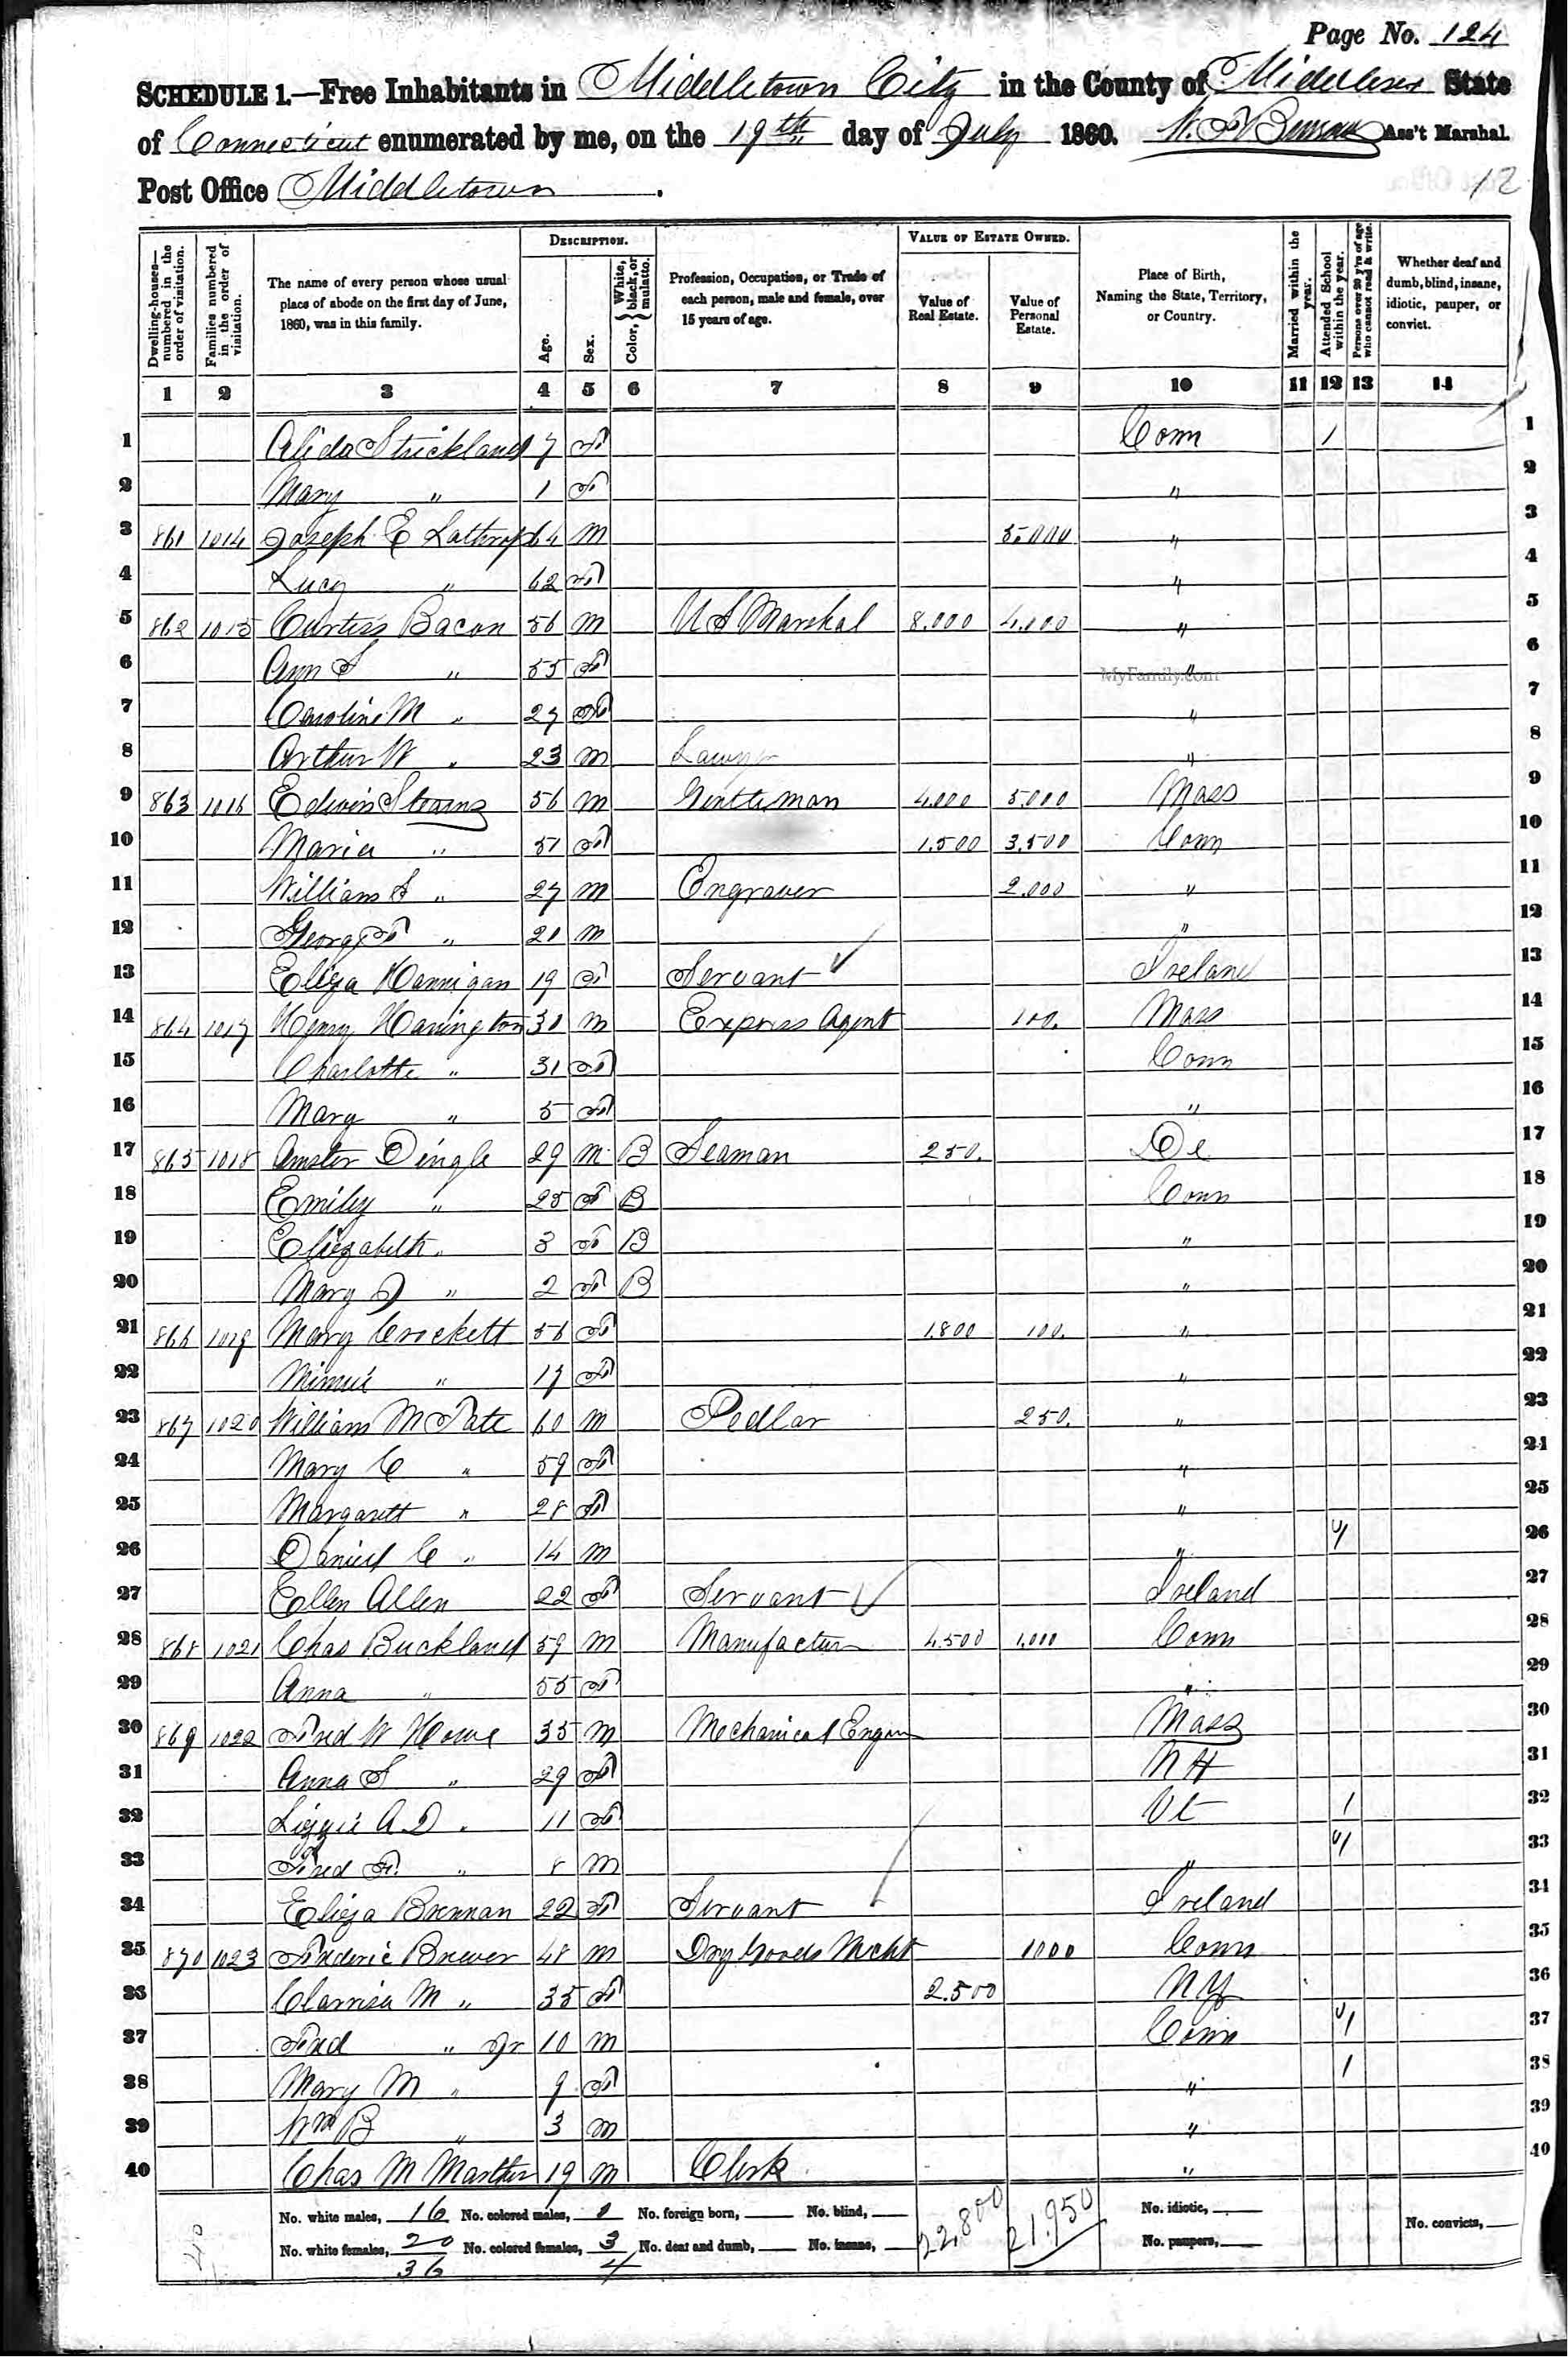 Page No. 124
SCHEDULE 1.—Free Inhabitants in Middletown City in the County of Middlesex State
of Connecticut enumerated by me, on the 19th day of July 1860. Ass't Marshal.
12
Post Office Middletown.
DESCRIPTION. VALUE OF ESTATE OWNED.
Dwelling-houses—numbered in the order of visitation.
Families numbered in the order of visitation.
The name of every person whose usual place of abode on the first day of June, 1860, was in this family.
Age.
Sex.
Color, { White, black, or mulatto.
Profession, Occupation, or Trade of each person, male and female, over 15 years of age.
Value of Real Estate.
Value of Personal Estate.
Place of Birth, Naming the State, Territory, or Country.
Married within the year.
Attended School within the year.
Persons over 20 y'rs of age who cannot read & write.
Whether deaf and dumb, blind, insane, idiotic, pauper, or convict.
1 2 3 4 5 6 7 8 9 10 11 12 13 14
1 Alida Strickland 7 F Conn 1 1
2 Mary " 1 F " 2
3 861 1014 Joseph E Lathrop 64 M 5.000 " 3
4 Lucy " 62 F " 4
5 862 1015 Curtiss Bacon 56 M U S Marshal 8.000 4.000 " 5
6 Ann S " 55 F " 6
MyFamily.com
7 Caroline M " 27 F " 7
8 Arthur W " 23 M Lawyer " 8
9 863 1016 Edwin Stearns 56 M Gentleman 4.000 5.000 Mass 9
10 Maria " 51 F 1.500 3.500 Conn 10
11 William S " 27 M Engraver 2.000 " 11
12 George F " 21 M " 12
13 Eliza Hannigan 19 F Servant ✓ Ireland 13
14 864 1017 Henry Harrington 31 M Express Agent 100. Mass 14
15 Charlotte " 31 F Conn 15
16 Mary " 5 F " 16
17 865 1018 Dingle 29 M B Seaman 250. De 17
18 Emily " 25 F B Conn 18
19 Elizabeth " 3 F B " 19
20 Mary J " 2 F B " 20
21 866 1019 Mary Crockett 56 F 1.800 100. " 21
22 Minnie " 17 F " 22
23 867 1020 William M Tate 60 M Pedlar 250. " 23
24 Mary C " 59 F " 24
25 Margarett " 28 F " 25
26 Daniel C " 14 M " 1 26
27 Ellen Allen 22 F Servant ✓ Ireland 27
28 868 1021 Chas Buckland 59 M Manufactur 4.500 1.000 Conn 28
29 Anna " 55 F " 29
30 869 1022 Fred W Howe 35 M Mechanical Engin Mass 30
31 Anna S " 29 F N H 31
32 Lizzie A D " 11 F Vt 1 32
33 Fred F. " 8 M " 1 33
34 Eliza Brennan 22 F Servant Ireland 34
35 870 1023 Frederic Brewer 48 M Dry Goods Mcht 1000 Conn 35
36 Clarrisa M " 35 F 2.500 N Y 36
37 Fred " Jr 10 M Conn 1 37
38 Mary M " 9 F " 1 38
39 Wm B " 3 M " 39
40 Chas M 19 M Clerk " 40
No. white males, 16 No. colored males, 1 No. foreign born, No. blind, 22,800 21,950 No. idiotic,
No. white females, 20 No. colored females, 3 No. deaf and dumb, No. insane, No. paupers, No. convicts,
40 36 4